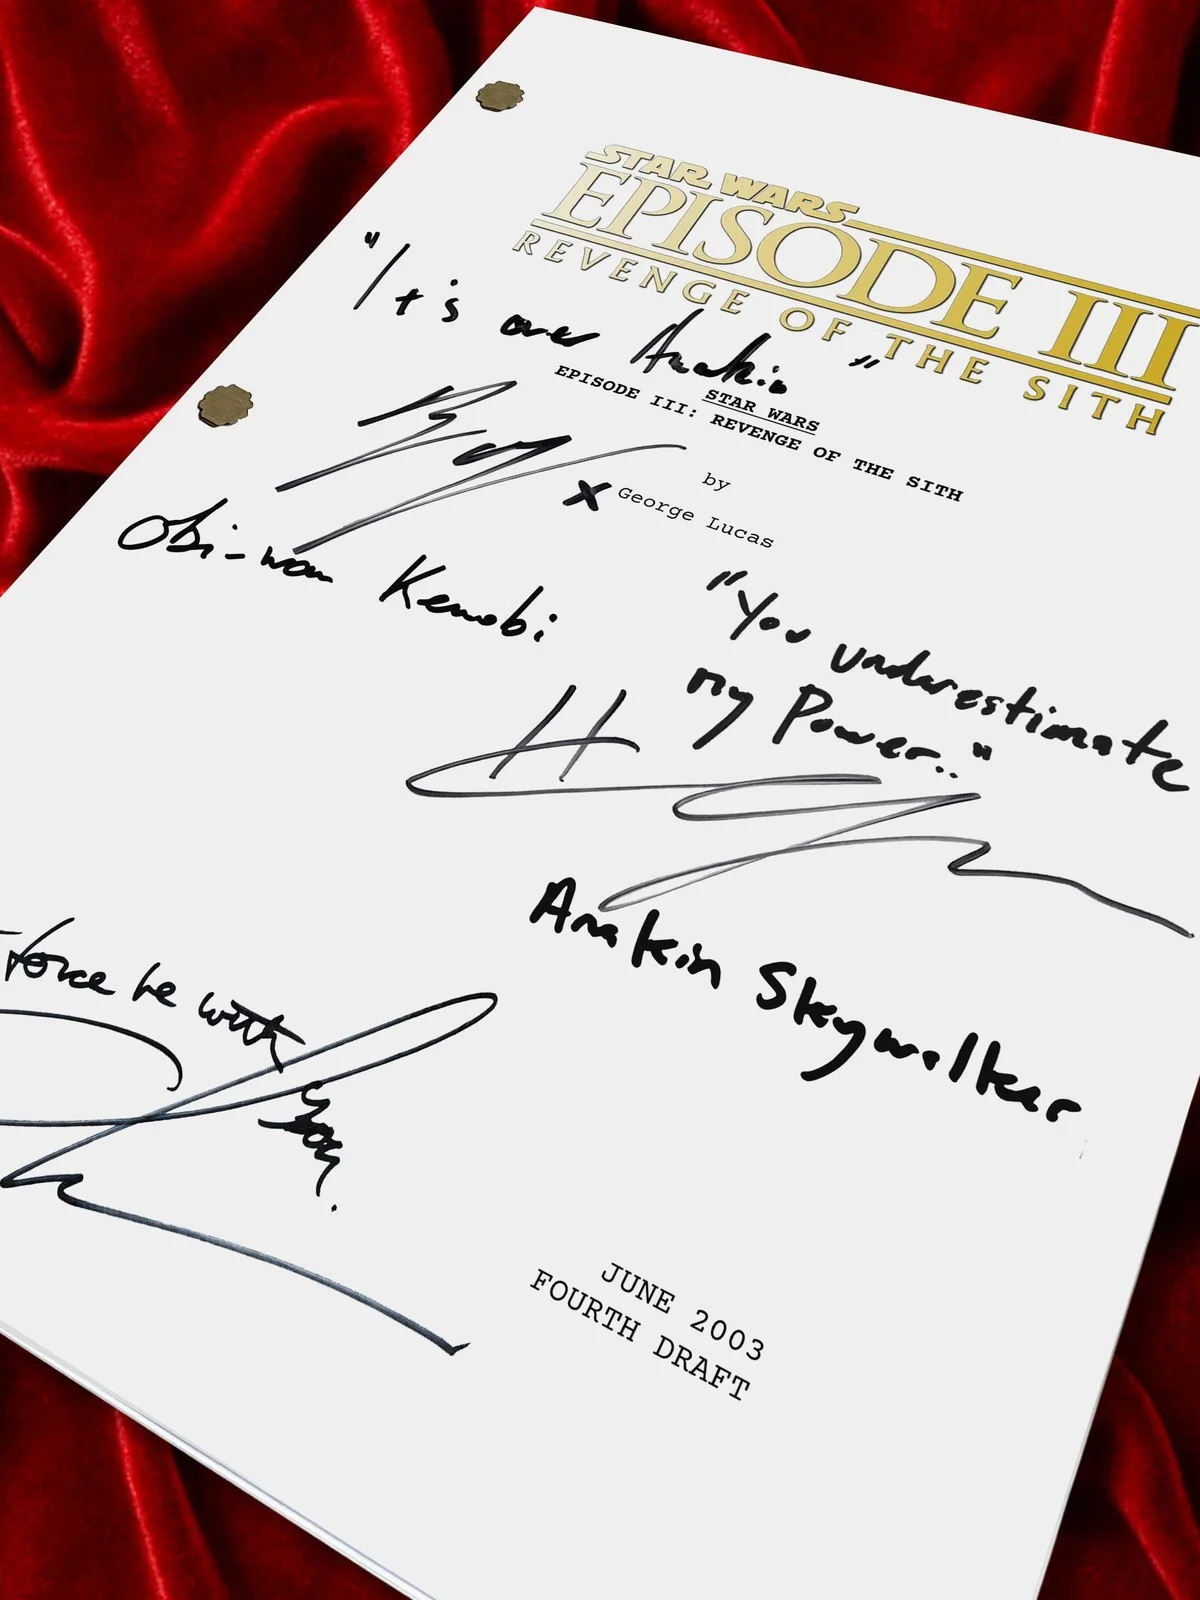 STAR WARS
EPISODE III
REVENGE OF THE SITH
"It's over Anakin"
STAR WARS
EPISODE III: REVENGE OF THE SITH
by
x George Lucas
Obi-wan Kenobi
"You underestimate
my Power.."
Anakin Skywalker
Force be with
you.
JUNE 2003
FOURTH DRAFT